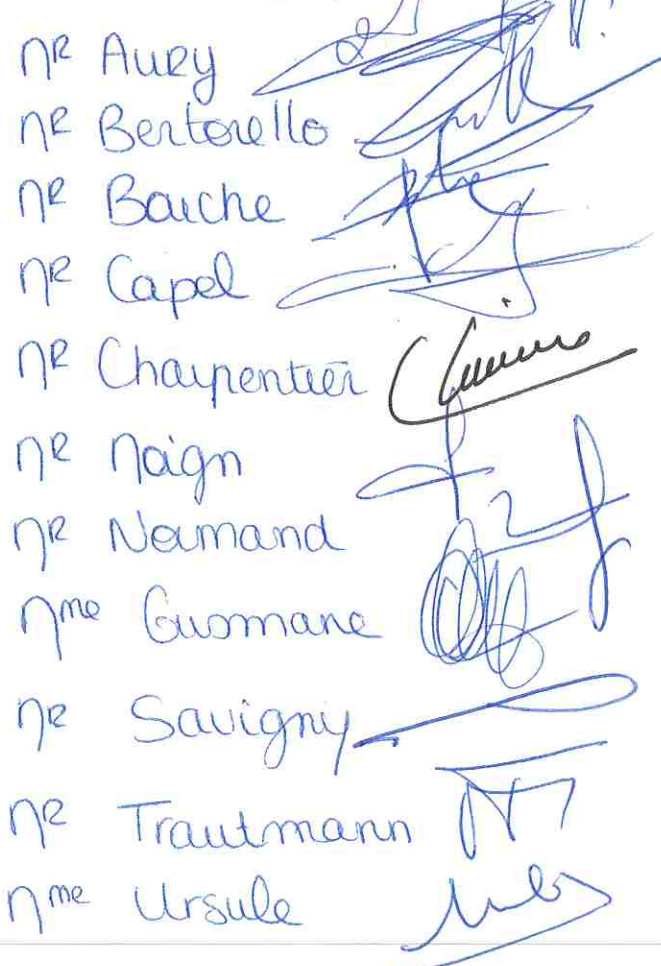 MR Aury
MR Bertorello
MR Baiche
MR Capel
MR Charpentier
MR Maign
MR Normand
Mme Gusmane
MR Savigny
MR Trautmann
Mme Ursule